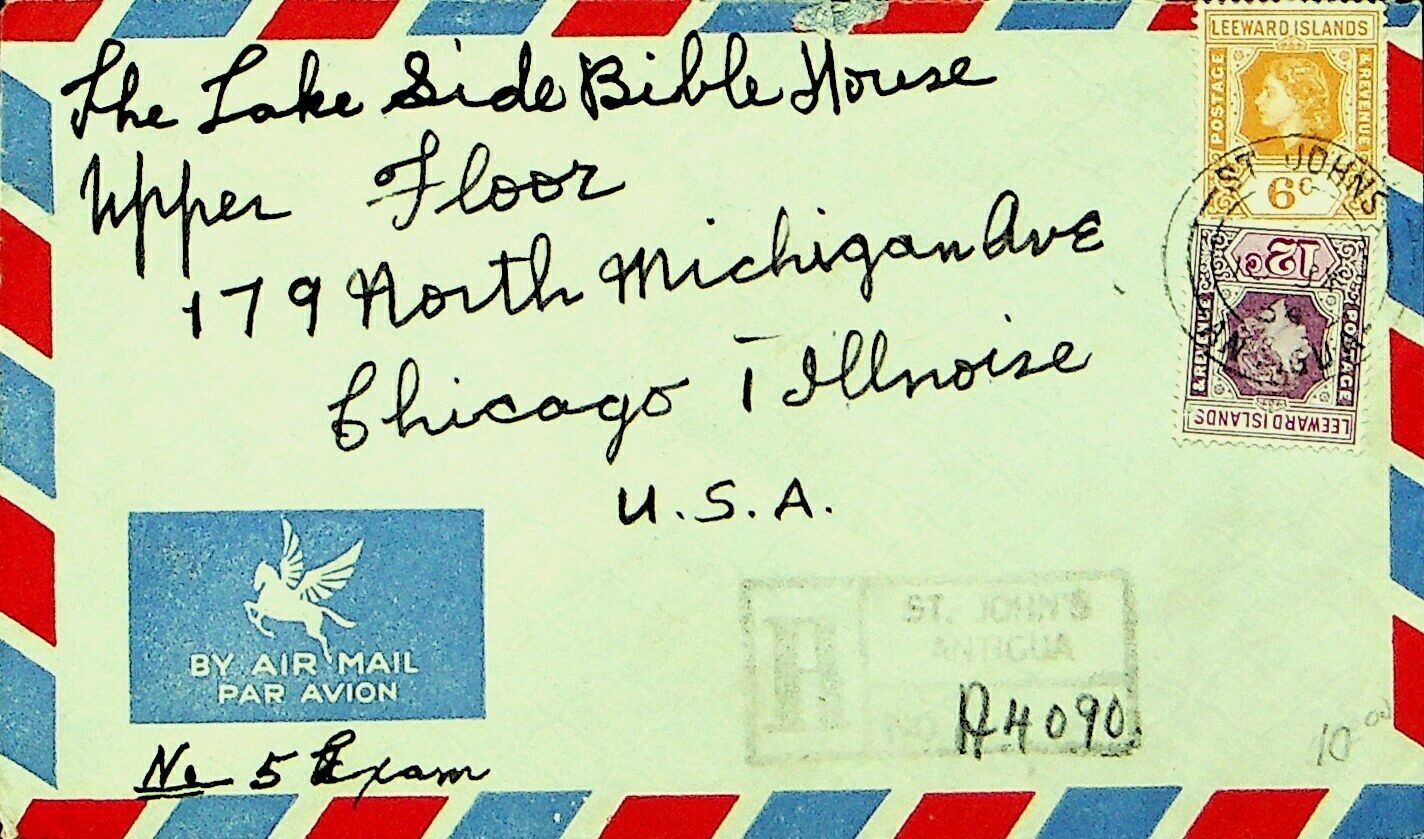 The Lake Side Bible House
Upper Floor
179 North Michigan Ave
Chicago 1 Illnoise
U.S.A.
LEEWARD ISLANDS
POSTAGE
& REVENUE
6c
12c
& REVENUE
POSTAGE
LEEWARD ISLANDS
ST JOHNS
BY AIR MAIL
PAR AVION
No 5 Exam
R
ST. JOHN'S
ANTIGUA
NO
A4090
10.00